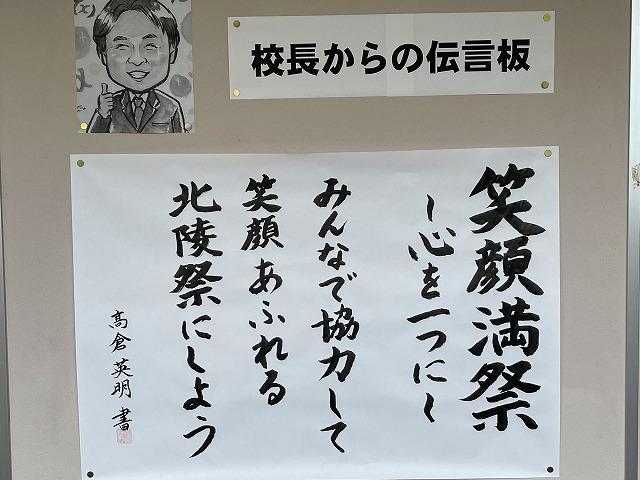 校長からの伝言板
笑顔満祭
～心を一つに～
みんなで協力して
笑顔あふれる
北陵祭にしよう
髙倉英明 書